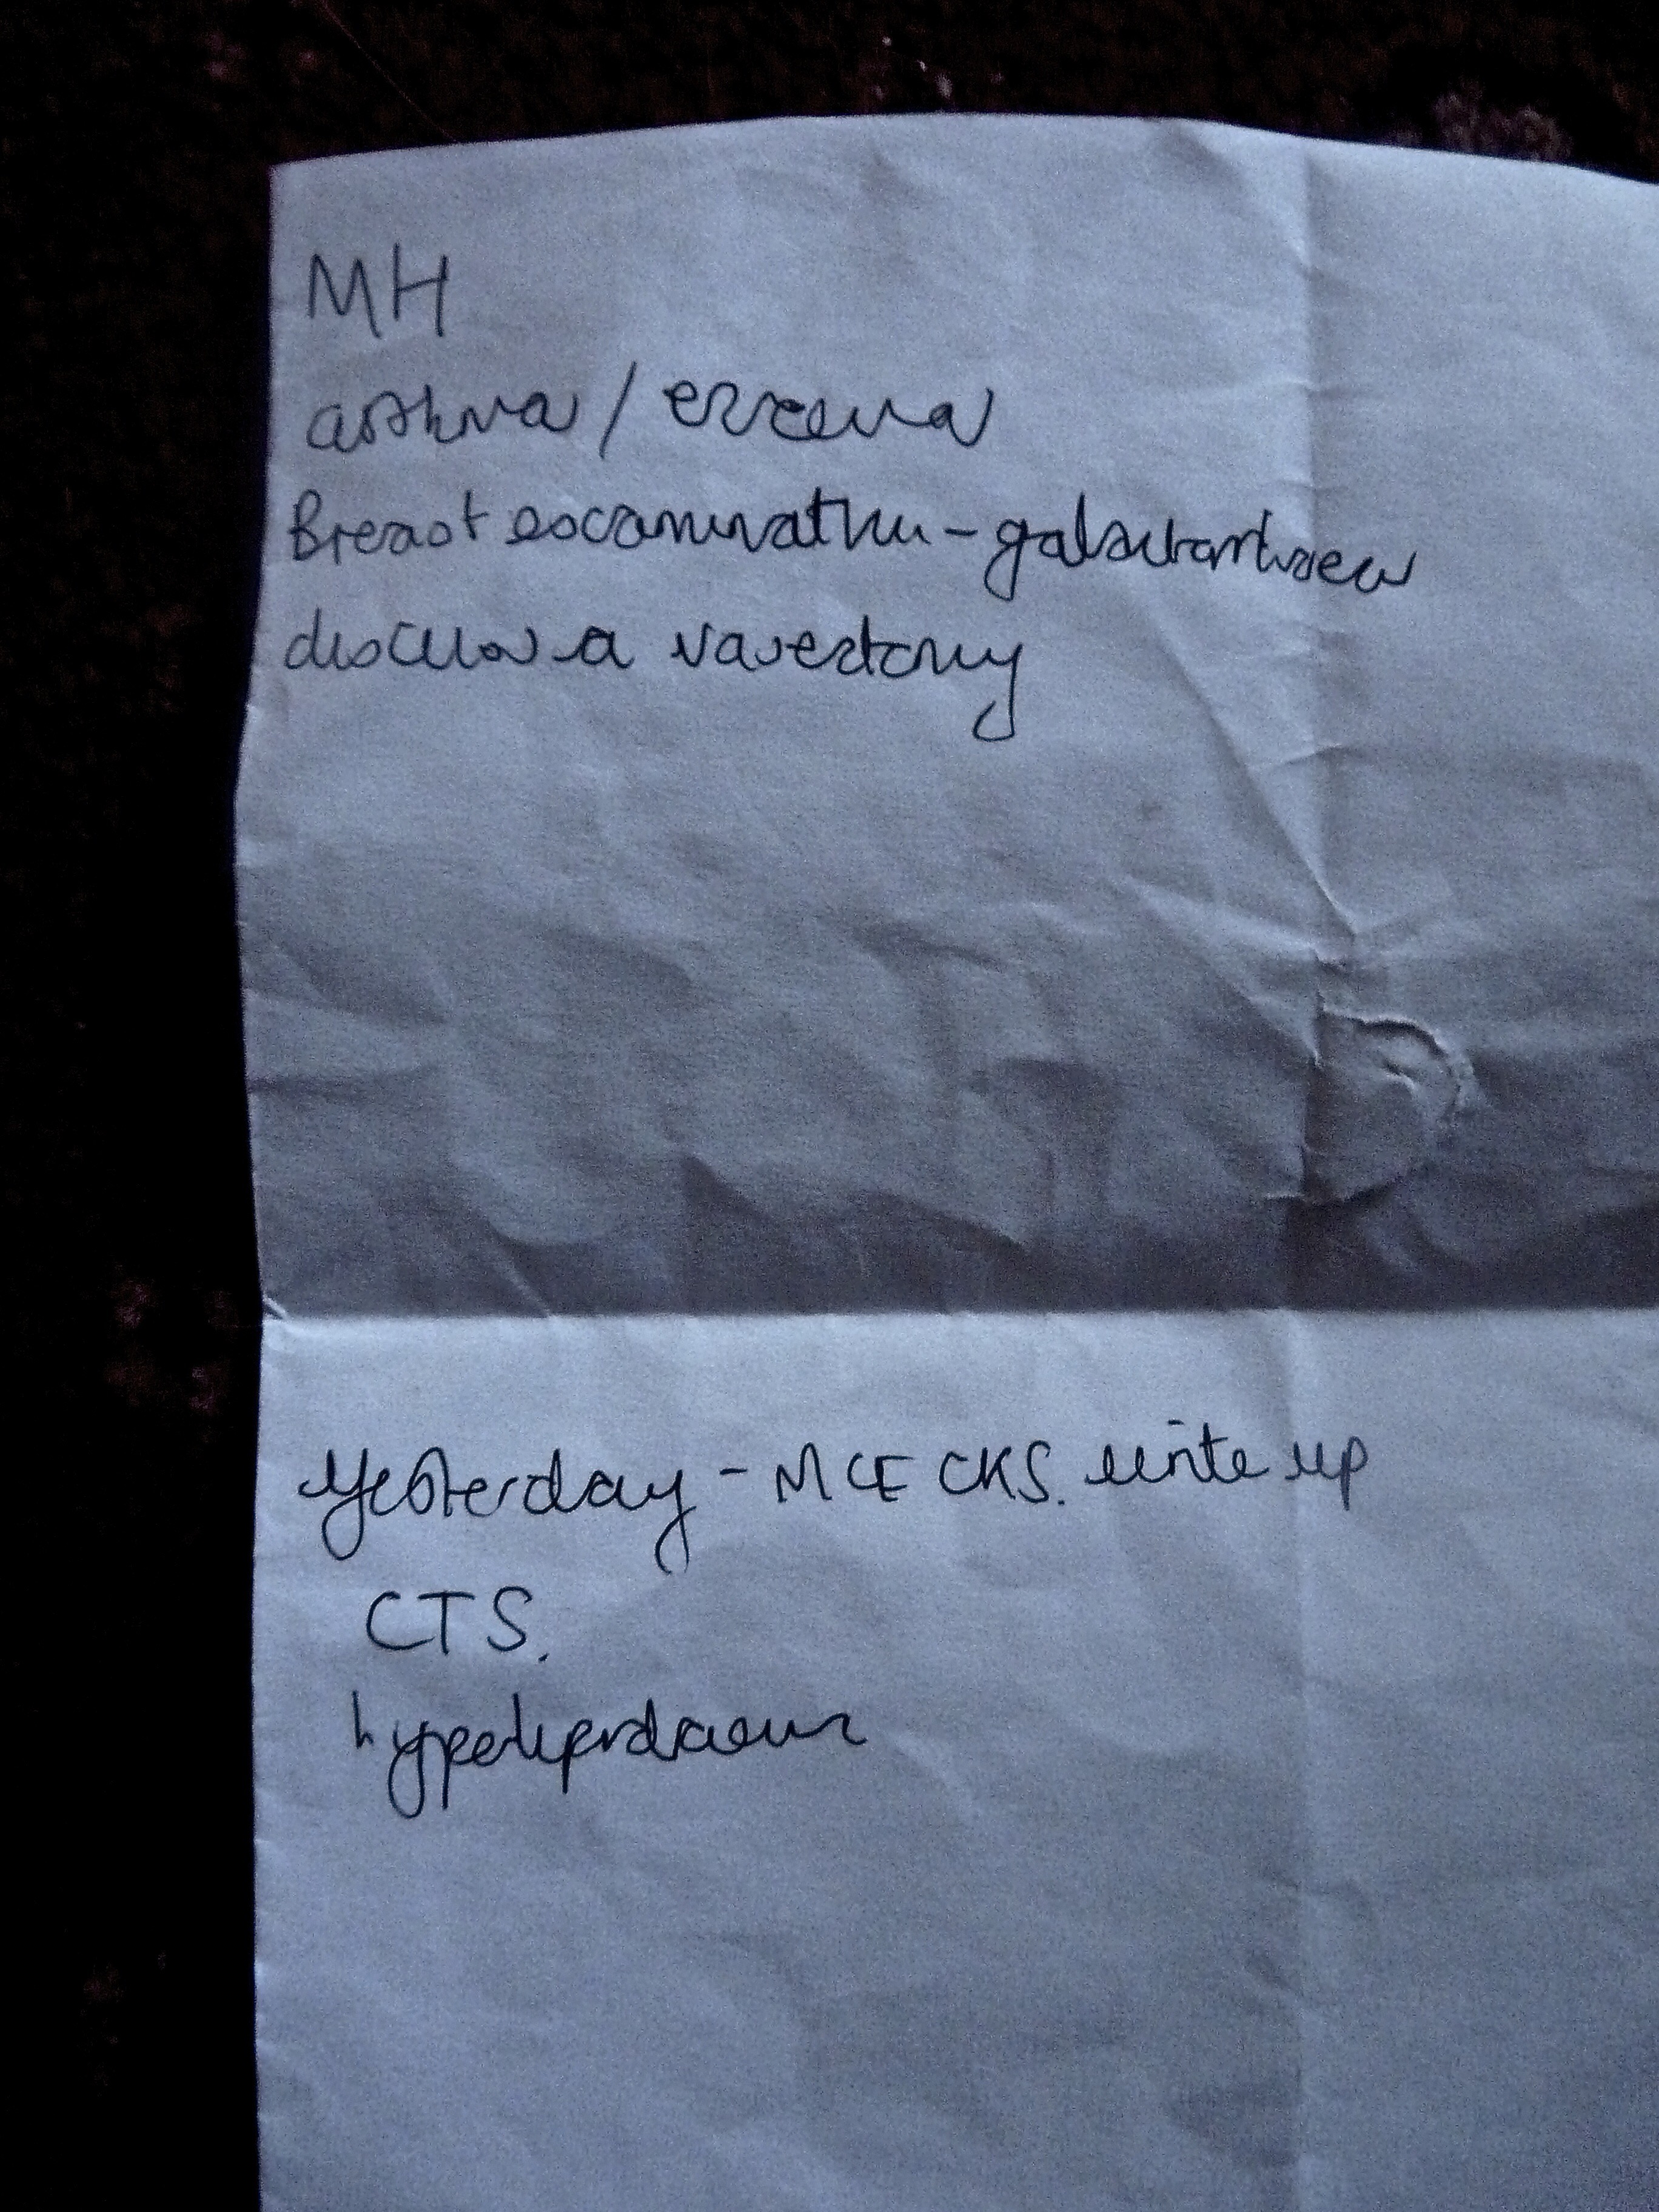 MH
asthma / eczema
Breast examination - galactorrhoea
discuss a vasectomy
Yesterday - MCE CKS. write up
CTS.
hyperlipidaemia